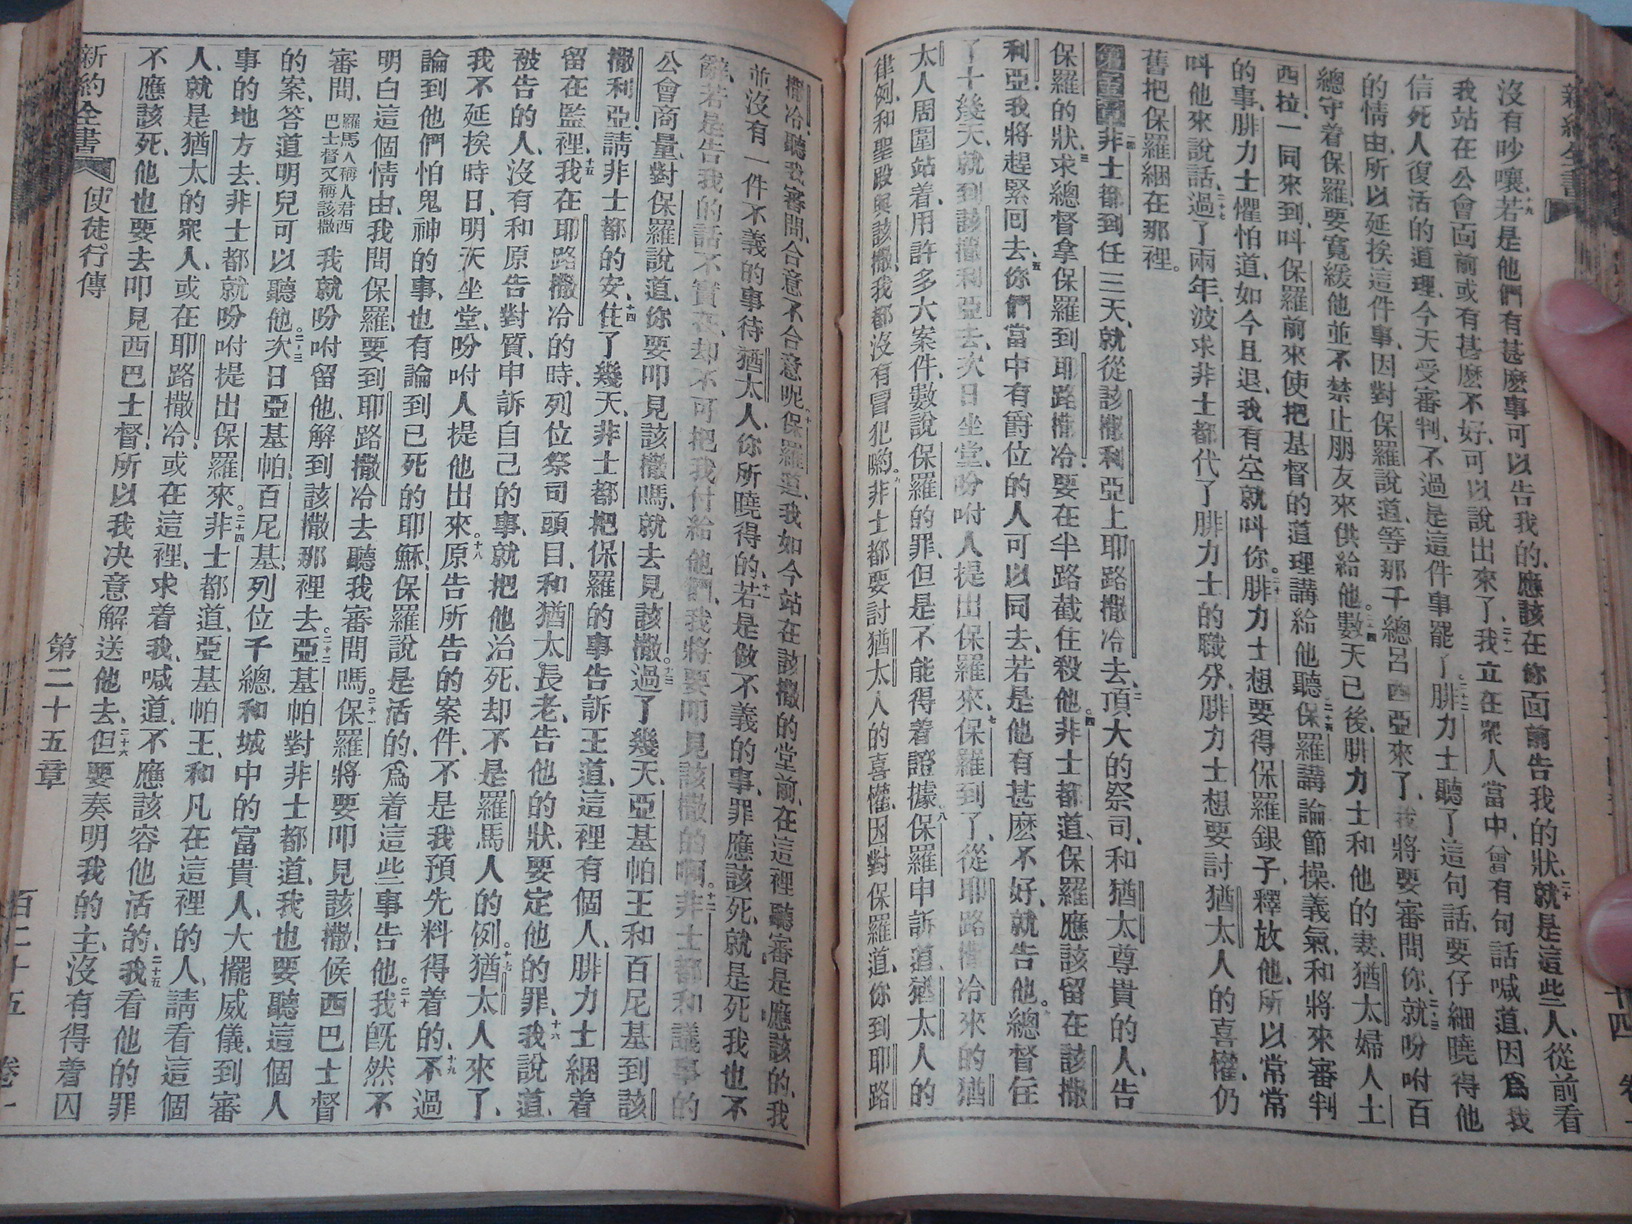 沒有吵嚷、十九若是他們有甚麽事可以告我的、應該在你面前告我的狀、二十就是這些人、從前看
我站在公會面前或有甚麽不好、可以說出來了、二十一我立在衆人當中、曾有句話喊道、因爲我
信死人復活的道理、今天受審判、不過是這件事罷了、二十二腓力士聽了這句話、要仔細曉得他
的情由、所以延挨這件事、因對保羅說道、等那千總呂西亞來了、我將要審問你、二十三就吩咐百
總守着保羅、要寬緩他、並不禁止朋友來供給他。二十四數天已後、腓力士和他的妻、猶太婦人土
西拉、一同來到、叫保羅前來、使把基督的道理講給他聽、二十五保羅講論節操、義氣、和將來審判
的事、腓力士懼怕道、如今且退、我有空就叫你。二十六腓力士想要得保羅銀子、釋放他、所以常常
叫他來說話、二十七過了兩年、波求非士都代了腓力士的職分、腓力士想要討猶太人的喜懽、仍
舊把保羅綑在那裡。
第二十五章非士都到任三天、就從該撒利亞上耶路撒冷去、二頂大的祭司、和猶太尊貴的人、告
保羅的狀、三求總督拿保羅到耶路撒冷、要在半路截住殺他。四非士都道、保羅應該留在該撒
利亞、我將趕緊回去、五你們當中有爵位的人、可以同去、若是他有甚麽不好、就告他。六總督住
了十幾天、就到該撒利亞去、次日坐堂、吩咐人提出保羅來、七保羅到了、從耶路撒冷來的猶
太人周圍站着、用許多大案件、數說保羅的罪、但是不能得着證據、八保羅申訴道、猶太人的
律例、和聖殿、與該撒、我都沒有冒犯喲。九非士都要討猶太人的喜懽、因對保羅道、你到耶路
撒冷聽我審問、合意不合意呢、十保羅道、我如今站在該撒的堂前、在這裡聽審是應該的、我
並沒有一件不義的事待猶太人、你所曉得的、十一若是做不義的事、罪應該死、就是死我也不
辭、若是告我的話不實在、却不可把我付給他們、我將要叩見該撒的啊。十二非士都和議事的
公會商量、對保羅說道、你要叩見該撒嗎、就去見該撒。十三過了幾天、亞基帕王和百尼基、到該
撒利亞請非士都的安、十四住了幾天、非士都把保羅的事告訴王道、這裡有個人、腓力士綑着
留在監裡、十五我在耶路撒冷的時、列位祭司頭目、和猶太長老、告他的狀、要定他的罪、十六我說道、
被告的人、沒有和原告對質、申訴自己的事、就把他治死、却不是羅馬人的例。十七猶太人來了、
我不延挨時日、明天坐堂、吩咐人提他出來。十八原告所告的案件、不是我預先料得着的、十九不過
論到他們怕鬼神的事、也有論到已死的耶穌、保羅說是活的、爲着這些事告他。二十我旣然不
明白這個情由、我問保羅、要到耶路撒冷去聽我審問嗎。二十一保羅將要叩見該撒、候西巴士督
審問、羅馬人稱人君西巴士督又稱該撒 我就吩咐留他、解到該撒那裡去。二十二亞基帕對非士都道、我也要聽這個人
的案、答道、明兒可以聽他。二十三次日亞基帕、百尼基、列位千總、和城中的富貴人、大擺威儀、到審
事的地方去、非士都就吩咐提出保羅來。二十四非士都道、亞基帕王、和凡在這裡的人、請看這個
人、就是猶太的衆人、或在耶路撒冷、或在這裡、求着我、喊道、不應該容他活的、二十五我看他的罪
不應該死、他也要去叩見西巴士督、所以我决意解送他去、二十六但要奏明我的主、沒有得着囚
新約全書 使徒行傳 第二十五章 百二十五 卷一